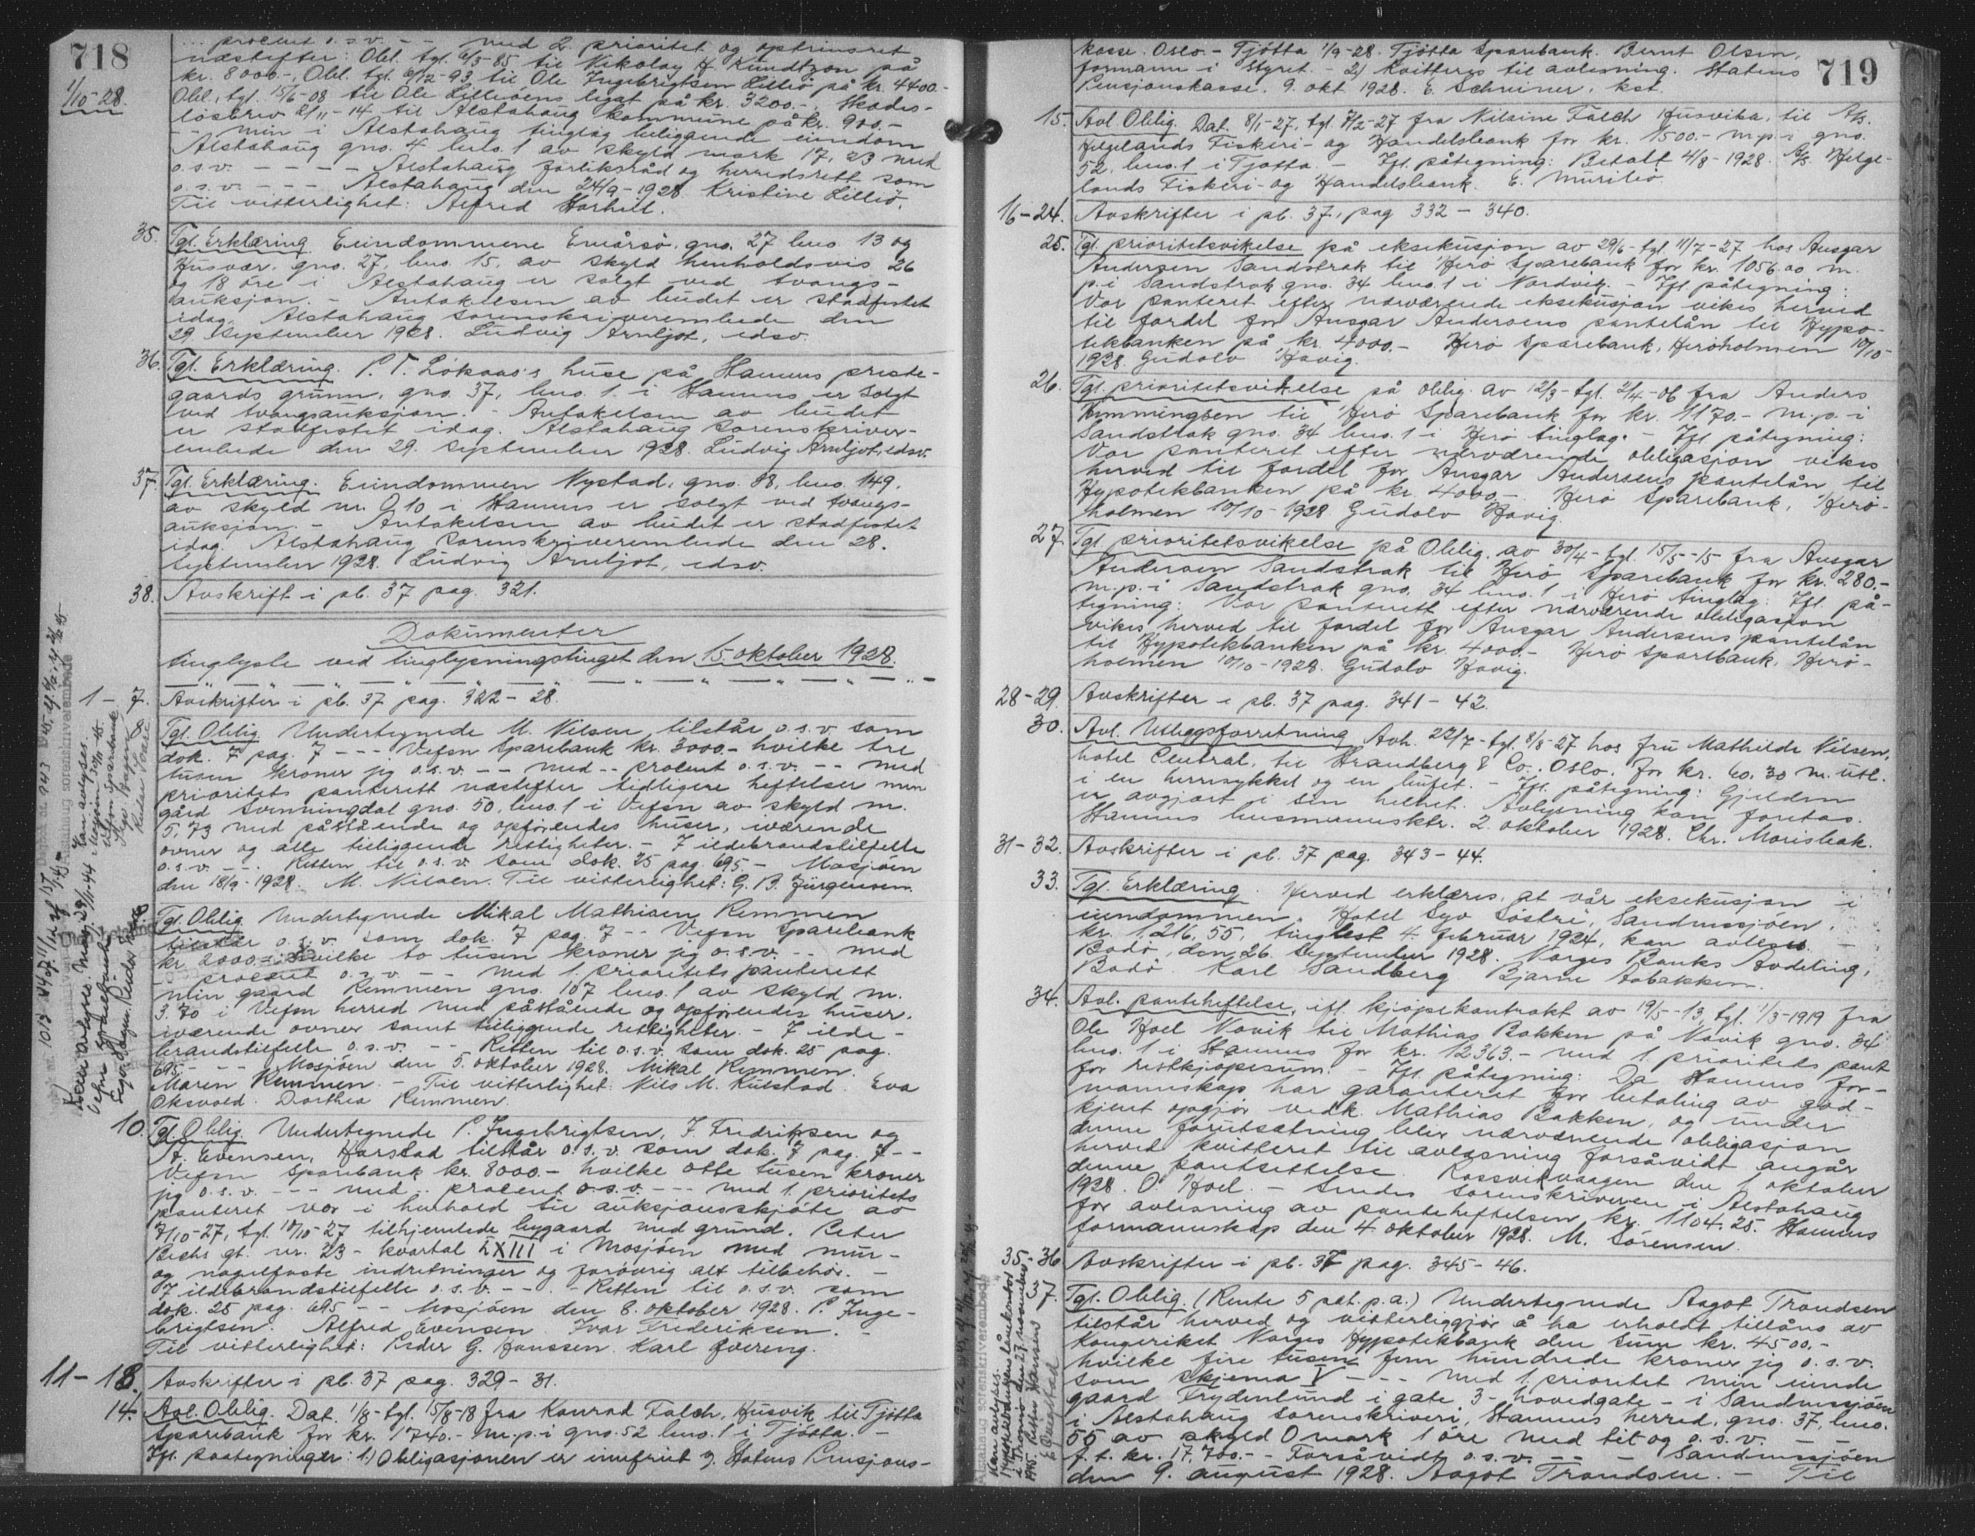 718
1/10-28.
... procent o.s.v. -- med 2. prioritet og optrinsret
næstefter: Obl. tgl. 6/3-85 til Nikolay H. Kundtzon på
kr. 8000.-, Obl. tgl. 6/12-93 til Ole Ingebrigtsen Lilleiö på kr. 4400.-
Obl. tgl. 15/6-08 til Ole Lilleiöens legat på kr. 3200.-. Skades-
lösbrev 2/11-14 til Alstahaug kommune på kr. 900.-
-- min i Alstahaug tinglag beliggende eiendom
Alstahaug gno. 4 bno. 1 av skyld mark 17,23 med
o.s.v. ---- Alstahaug forliksråd og herredsrett som
o.s.v. --- Alstahaug den 24/9-1928. Kristine Lilleiö.
Til vitterlighet: Alfred Horhell.
35. Tgl. Erklæring. Eiendommene Emårsö, gno. 27 bno 13 og
Husvær, gno. 27, bno. 15, av skyld henholdsvis 26
og 18 öre i Alstahaug er solgt ved tvangs-
auksjon. - Antakelsen av budet er stadfestet
idag. Alstahaug sorenskriverembede den
29. september 1928. Ludvig Arnljot, edsv.
36. Tgl. Erklæring. P. T. Lökaas's huse på Hamnes preste-
gaards grunn, gno. 37, bno. 1 i Hamnes er solgt
ved tvangsauksjon. - Antakelsen av budet
er stadfestet idag. Alstahaug sorenskriver-
embede den 29. september 1928. Ludvig Arnljot, edsv.
37. Tgl. Erklæring. Eiendommen Nystad, gno. 38, bno. 149,
av skyld m. 0.10 i Hamnes er solgt ved tvangs-
auksjon. - Antakelsen av budet er stadfestet
idag. Alstahaug sorenskriverembede den 28.
september 1928. Ludvig Arnljot, edsv.
38. Avskrift i pb. 37 pag. 321.
Dokumenter
tinglyste ved tinglysningstinget den 15. oktober 1928.
1-7. Avskrifter i pb. 37 pag. 322-28.
8. Tgl. Oblig. Undertegnede M. Nilsen tilstår o.s.v. som
dok. 7 pag. 7 --- Vefsn Sparebank kr. 3000.- hvilke tre
tusen kroner jeg o.s.v. -- med -- procent o.s.v. -- med
prioritets panterett næstefter tidligere heftelser min
gård Svenningdal gno. 50, bno. 1 i Vefsn av skyld m.
5,73 med påstående og opförendes huser, iværende
ovner og alle tilliggende rettigheter. - I ildebrandstilfelle
o.s.v. -- Retten til o.s.v. som dok. 25 pag. 695 - Mosjöen
den 18/9-1928. M. Nilsen. Til vitterlighet: G. B. Jürgensen.
Tgl. Oblig. Undertegnede Mikal Mathisen Remmen
tilstår o.s.v. som dok. 7 pag. 7 -- Vefsn Sparebank
kr. 2000.- hvilke to tusen kroner jeg o.s.v. -- med
procent o.s.v. -- med 1. prioritets panterett
min gaard Remmen gno. 107 bno. 1 av skyld m.
3.70 i Vefsn herred med påstående og opförendes huser,
iværende ovner samt tilliggende rettigheter. - I ilde-
brandstilfelle o.s.v. -- Retten til o.s.v. som dok. 25 pag.
695 -- Mosjöen den 5. oktober 1928. Mikal Remmen.
Maren Remmen. - Til vitterlighet: Nils M. Kulstad. Eva
Oksvold. Dorthea Remmen.
10. Tgl. Oblig. Undertegnede P. Ingebrigtsen, I. Fredriksen og
A. Evensen, Harstad tilstår o.s.v. som dok. 7 pag. 7--
Vefsn Sparebank kr. 8000.- hvilke otte tusen kroner
jeg o.s.v. --- med .. procent o.s.v. --- med 1. prioritets
panteret vor i henhold til auksjonsskjöte av
7/10-27, tgl. 10/10-27 tilhjemlede bygaard med grund. Peter
Bechs gt. nr. 23 - kvartal LXIII i Mosjöen med mur-
og nagelfaste indretninger og forövrig alt tilbehör. -
I ildebrandstilfelle o.s.v. --- Retten til o.s.v. som
dok. 25 pag. 695 -- Mosjöen den 8. oktober 1928. P. Inge-
brigtsen. Alfred Evensen. Ivar Frederiksen. -
Til vitterlighet: Peder G. Hanssen. Karl Övereng.
11-13. Avskrifter i pb. 37 pag. 329-31.
14. Avl. Oblig. Dat. 1/8- tgl. 15/8-18 fra Konrad Falch, Husvik til Tjötta
Sparebank for kr. 1740.- m.p.i gno. 52 bno. 1 i Tjötta. -
Ifl. paategninger: 1) Obligasjonen er innfriet og Statens Pensjons-
719
kasse. Oslo. - Tjötta 1/9-28. Tjötta Sparebank. Bernt Olsen,
formann i styret. - 2) Kvitteres til avlesning. Statens
Pensjonskasse. 9. okt 1928. E. Schreiner, kst.
15. Avl. Oblig. Dat. 8/1-27, tgl. 7/2-27 fra Nilsine Falch Husvika, til A/S
Helgelands Fiskeri- og Handelsbank for kr. 1500.- m.p.i gno.
52, bno. 1 i Tjötta. - Ifl. påtegning: Betalt 4/8-1928. A/S Helge-
lands Fiskeri- og Handelsbank. E.
16-24. Avskrifter i pb. 37, pag 332-340.
25. Tgl. prioritetsvikelse på eksekusjon av 29/6- tgl. 11/7-27 hos Ansgar
Andersen Sandstrak til Herö Sparebank for kr. 1056.00 m.
p.i Sandstrak gno. 34 bno. 1 i Nordvik. - Ifl. påtegning:
Vor panteret efter nærværende eksekusjon vikes herved
til fordel for Ansgar Andersens pantelån til Hypo-
tekbanken på kr. 4000.- Herö Sparebank, Heröholmen 10/10-
1928. Gudolv Havig.
26. Tgl. prioritetsvikelse på oblig. av 12/3- tgl. 2/4-06 fra Anders
Hemmingsen til Herö Sparebank for kr. 1170.- m.p.i
Sandstrak gno. 34 bno. 1 i Herö tinglag. - Ifl. påtegning:
Vor panteret efter nærværende obligasjon vikes
herved til fordel for Ansgar Andersens pantelån til
Hypotekbanken på kr. 4000.- Herö Sparebank, Herö-
holmen 10/10-1928 Gudolv Havig.
27. Tgl. prioritetsvikelse på Oblig. av 30/4- tgl. 15/5-15 fra Ansgar
Andersen Sandstrak til Herö Sparebank for kr. 280.-
m.p.i Sandstrak gno. 34 bno. 1 i Herö tinglag. Ifl. på-
tegning: Vor panterett efter nærværende obligasjon
vikes herved til fordel for Ansgar Andersens pantelån
til Hypotekbanken på kr. 4000.- Herö Sparebank, Herö-
holmen 10/10-1928. Gudolv Havig.
28-29. Avskrifter i pb. 37 pag. 341-42.
30. Avl. Utleggsforretning Avh. 22/7- tgl. 8/8-27 hos fru Mathilde Nilsen,
hotel Central, til Strandberg & Co., Oslo. for kr. 60.30 m. utl.
i en herresykkel og en buffet. - Ifl. påtegning: Gjelden
er avgjort i sin helhet. Avlysning kan foretas.
Hamnes lensmannsktr. 2. oktober 1928. Chr. Morisbak.
31-32. Avskrifter i pb. 37 pag. 343-44.
33. Tgl. Erklæring. Herved erklæres, at vår eksekusjon i
eiendommen, Hotel Syv Söstre, Sandnessjöen,
kr. 1.216,55, tinglest 4. februar 1924, kan avleses. -
Bodö, den 26. September 1928. Norges Banks Avdeling,
Bodö. Karl Sandberg Bjarne Aabakken.
34. Avl. panteheftelse, ifl. kjöpekontrakt av 19/5-13, tgl. 1/3-1919 fra
Ole Hoel Novik til Mathias Bakken på Novik gno. 34
bno. 1 i Hamnes for kr. 12363.- med 1. prioritets pant
for restkjöpesum. - Ifl. påtegning: Da Hamnes for-
mannskap har garanteret for betaling av god-
kjent opgjör vedk. Mathias Bakken, og under
denne forutsætning blir nærværende obligasjon
herved kvitteret til avlesning forsåvidt angår
denne pantsettelse. Rossvikvaagen den 1. oktober
1928. O. Hoel. - Sendes sorenskriveren i Alstahaug
for avlesning av panteheftelsen kr. 1104.25. Hamnes
formannskap den 4. oktober 1928. M. Sörensen.
35-36 Avskrifter i pb. 37 pag. 345-46.
7. Tgl. Oblig. (Rente 5 pct. p.a.) Undertegnede Aagot Trondsen
tilstår herved og vitterliggjör å ha erholdt tillåns av
Kongeriket Norges Hypotekbank den sum kr. 4500.-
hvilke fire tusen fem hundrede kroner jeg o.s.v.
som skjema V --- med 1. prioritet min eiende
gaard Frydenlund i gate 3 - hovedgate - i Sandnessjöen
i Alstahaug sorenskriveri, Hamnes herred, gno. 37, bno.
55 av skyld 0 mark 1 öre med til og o.s.v.
f.t. kr. 17.700.- Forsåvidt o.s.v. -- Sandnessjöen
den 9. august 1928. Aagot Trondsen. - Til